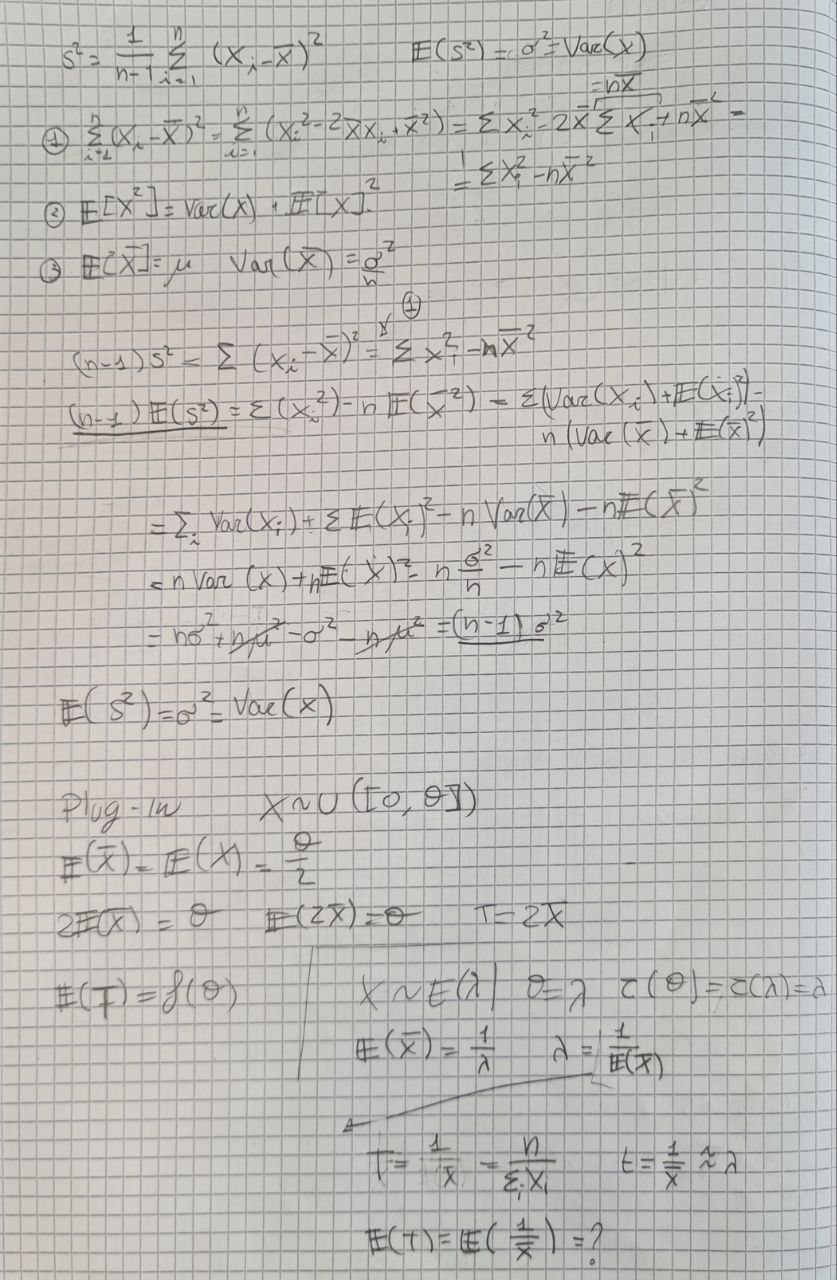 S² = 1/(n-1) Σ_{i=1}^{n} (X_i - X̄)²    𝔼(S²) = σ² = Var(X)
= nX̄
① Σ_{i=1}^{n} (X_i - X̄)² = Σ_{i=1}^{n} (X_i² - 2X̄X_i + X̄²) = Σ X_i² - 2X̄ Σ X_i + nX̄² =
= Σ X_i² - nX̄²
② 𝔼[X²] = Var(X) + 𝔼[X]²
③ 𝔼[X̄] = μ    Var(X̄) = σ²/n
①
(n-1) S² = Σ (X_i - X̄)² = Σ X_i² - nX̄²
(n-1) 𝔼(S²) = Σ(X_i²) - n 𝔼(X̄²) = Σ(Var(X_i) + 𝔼(X_i)²) -
n (Var(X̄) + 𝔼(X̄)²)
= Σ_i Var(X_i) + Σ 𝔼(X_i)² - n Var(X̄) - n𝔼(X̄)²
= n Var(X) + n𝔼(X)² - n σ²/n - n𝔼(X)²
= nσ² + nμ² - σ² - nμ² = (n-1) σ²
𝔼(S²) = σ² = Var(X)
Plug-in    X ~ U([0, θ])
𝔼(X̄) = 𝔼(X) = θ/2
2𝔼(X̄) = θ    𝔼(2X̄) = θ    T = 2X̄
𝔼(T) = f(θ)
X ~ E(λ)    θ = λ    τ(θ) = τ(λ) = λ
𝔼(X̄) = 1/λ    λ = 1/𝔼(X̄)
T = 1/X̄ = n/Σ_i X_i    t = 1/x̄ ≈ λ
𝔼(T) = 𝔼(1/X̄) = ?